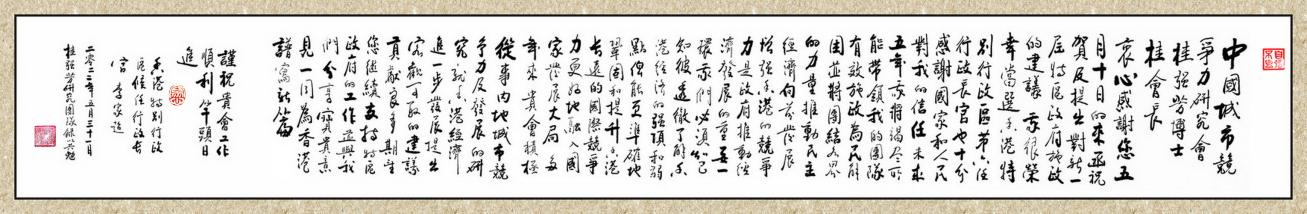 中國城市競
爭力研究會
桂強芳博士
桂會長
衷心感謝您五
月十日的來函祝
賀及提出對新一
屆特區政府施政
的建議我很榮
幸當選香港特
別行政區第六任
行政長官也十分
感謝國家和人民
對我的信任未來
五年我將竭盡所
能帶領我的團隊
有效施政為民解
困並團結各界
的力量推動民主
經濟向前發展
增強香港的競爭
力是政府推動經
濟發展的重要一
環我們必須知己
知彼透徹了解香
港經濟的強項和弱
點俾能更準確地
鞏固和提升香港
長遠的國際競爭
力更好地融入國
家發展大局多
年來貴會積極
從事內地城市競
爭力及發展的研
究就香港經濟
進一步發展提出
客觀可取的建議
貢獻良多期望
您繼續支持特區
政府的工作並與我
們分享寶貴意
見一同為香港
譜寫新篇
謹祝貴會工作
順利竿頭日
進
香港特別行政
區候任行政長
官 李家超
二零二二年五月三十一日
桂強芳研究團隊